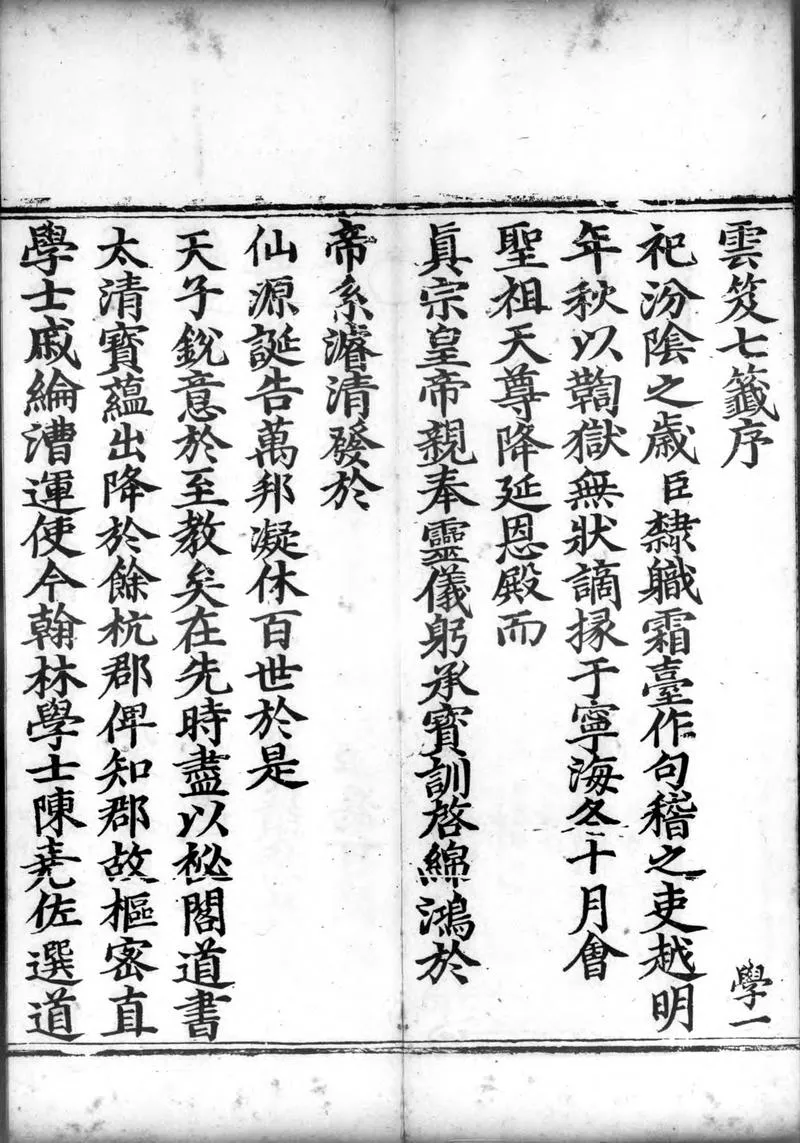 雲笈七籤序
學一
祀汾陰之歳臣隸職霜臺作句稽之吏越明
年秋以鞫獄無狀謫掾于寧海冬十月會
聖祖天尊降延恩殿而
真宗皇帝親奉靈儀躬承寳訓啓綿鴻於
帝系濬清發於
仙源誕告萬邦凝休百世於是
天子銳意於至教矣在先時盡以秘閣道書
太清寳蘊出降於餘杭郡俾知郡故樞密直
學士戚綸漕運使今翰林學士陳堯佐選道